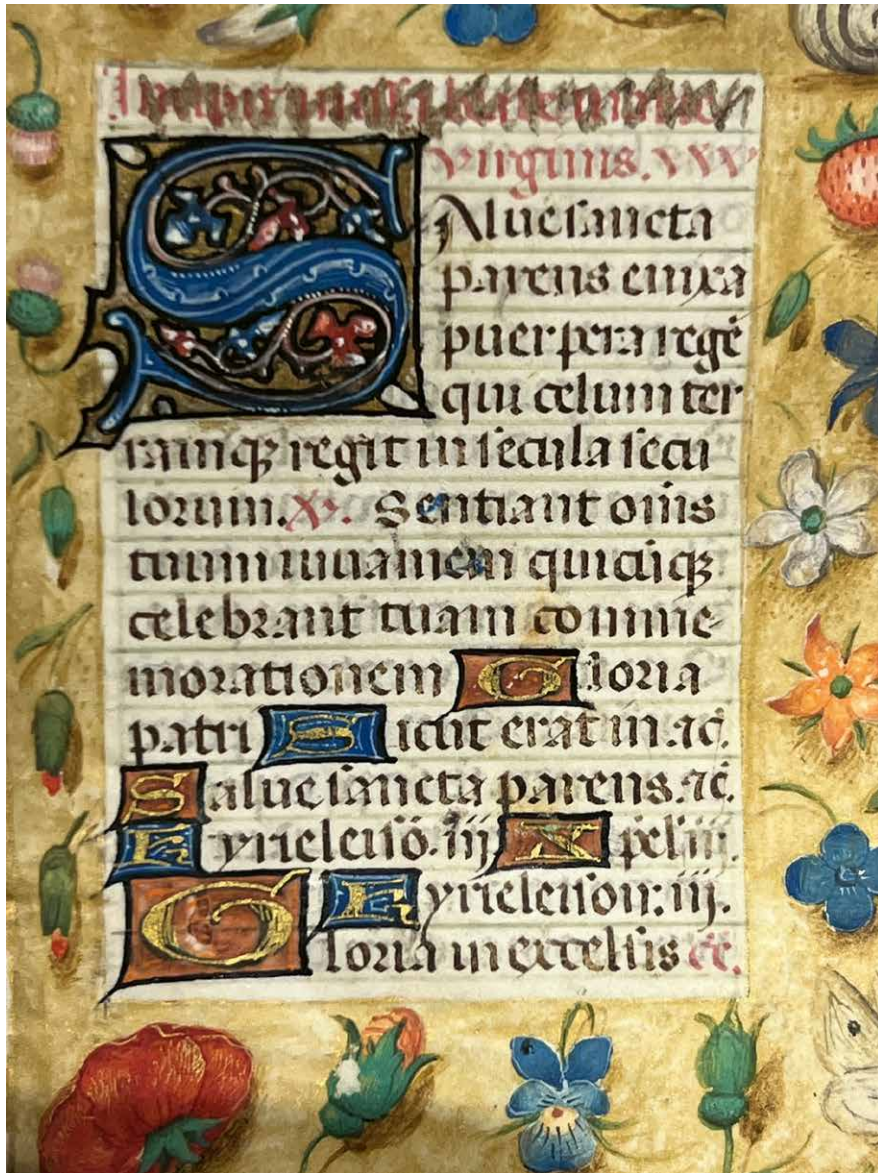 Incipit missa beate marie
virginis. xxx
Salue sancta
parens enixa
puerpera regē
qui celum ter
ramqꝫ regit in secula secu
lorum. X. Sentiant oīns
tuum iuuamem quicūqꝫ
celebrant tuam comme-
morationem Gloria
patri Sicut erat in. ⁊c̄.
Salue sancta parens. ⁊c̄.
Kyrieleisō. iij Xpēl iij.
Kyrieleison: iij.
Gloria in excelsis ⁊c.